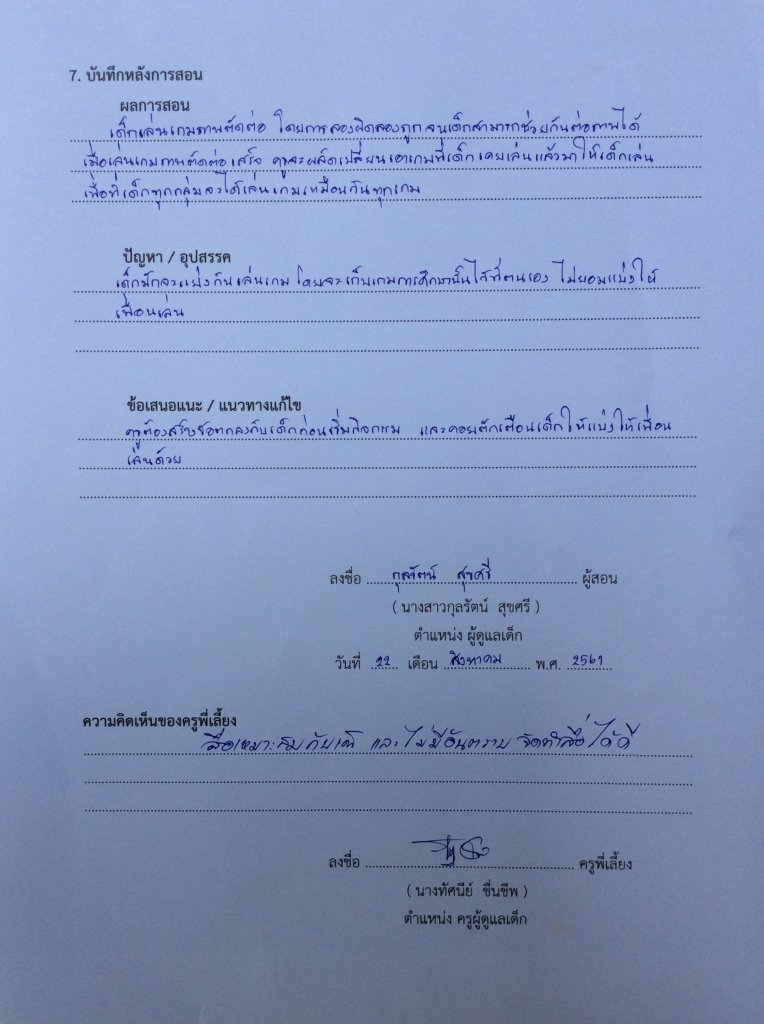 7. บันทึกหลังการสอน
ผลการสอน
เด็กเล่นเกมภาพตัดต่อ โดยการลองผิดลองถูก จนเด็กสามารถช่วยกันต่อภาพได้
เมื่อเล่นเกมภาพตัดต่อเสร็จ ครูจะผลัดเปลี่ยนเอาเกมที่เด็กเคยเล่นแล้วมาให้เด็กเล่น
เพื่อที่เด็กทุกกลุ่มจะได้เล่นเกมเหมือนกันทุกเกม
ปัญหา / อุปสรรค
เด็กมักจะแย่งกันเล่นเกม โดยจะเก็บเกมการศึกษานั้นไว้ที่ตนเอง ไม่ยอมแบ่งให้
เพื่อนเล่น
ข้อเสนอแนะ / แนวทางแก้ไข
ครูต้องสร้างข้อตกลงกับเด็กก่อนเริ่มกิจกรรม และคอยตักเตือนเด็กให้แบ่งให้เพื่อน
เล่นด้วย
ลงชื่อ กุลรัตน์ สุขศรี ผู้สอน
( นางสาวกุลรัตน์ สุขศรี )
ตำแหน่ง ผู้ดูแลเด็ก
วันที่ 22 เดือน สิงหาคม พ.ศ. 2561
ความคิดเห็นของครูพี่เลี้ยง
สื่อเหมาะสมกับเด็ก และไม่มีอันตราย จัดทำสื่อได้ดี
ลงชื่อ ครูพี่เลี้ยง
( นางทัศนีย์ ชื่นชีพ )
ตำแหน่ง ครูผู้ดูแลเด็ก